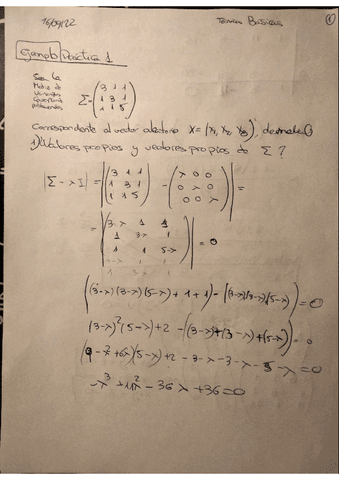 16/09/22 Técnicas Básicas 1
Ejemplo Práctica 1
Sea la
Matriz de
Varianzas
Covarianzas
Σ = (3 1 1
1 3 1
1 1 5)
Correspondiente al vector aleatorio X = (X₁, X₂, X₃)
1) Valores propios y vectores propios de Σ?
|Σ - λI| = |(3 1 1 / 1 3 1 / 1 1 5) - (λ 0 0 / 0 λ 0 / 0 0 λ)| =
= |(3-λ 1 1 / 1 3-λ 1 / 1 1 5-λ)| = 0
((3-λ)(3-λ)(5-λ) + 1 + 1) - = 0
(3-λ)²(5-λ) + 2 - ((3-λ) + (3-λ) + (5-λ)) = 0
+ 2 - 3 - λ - 3 - λ - 5 - λ = 0
-λ³ + 11λ² - 36λ + 36 = 0